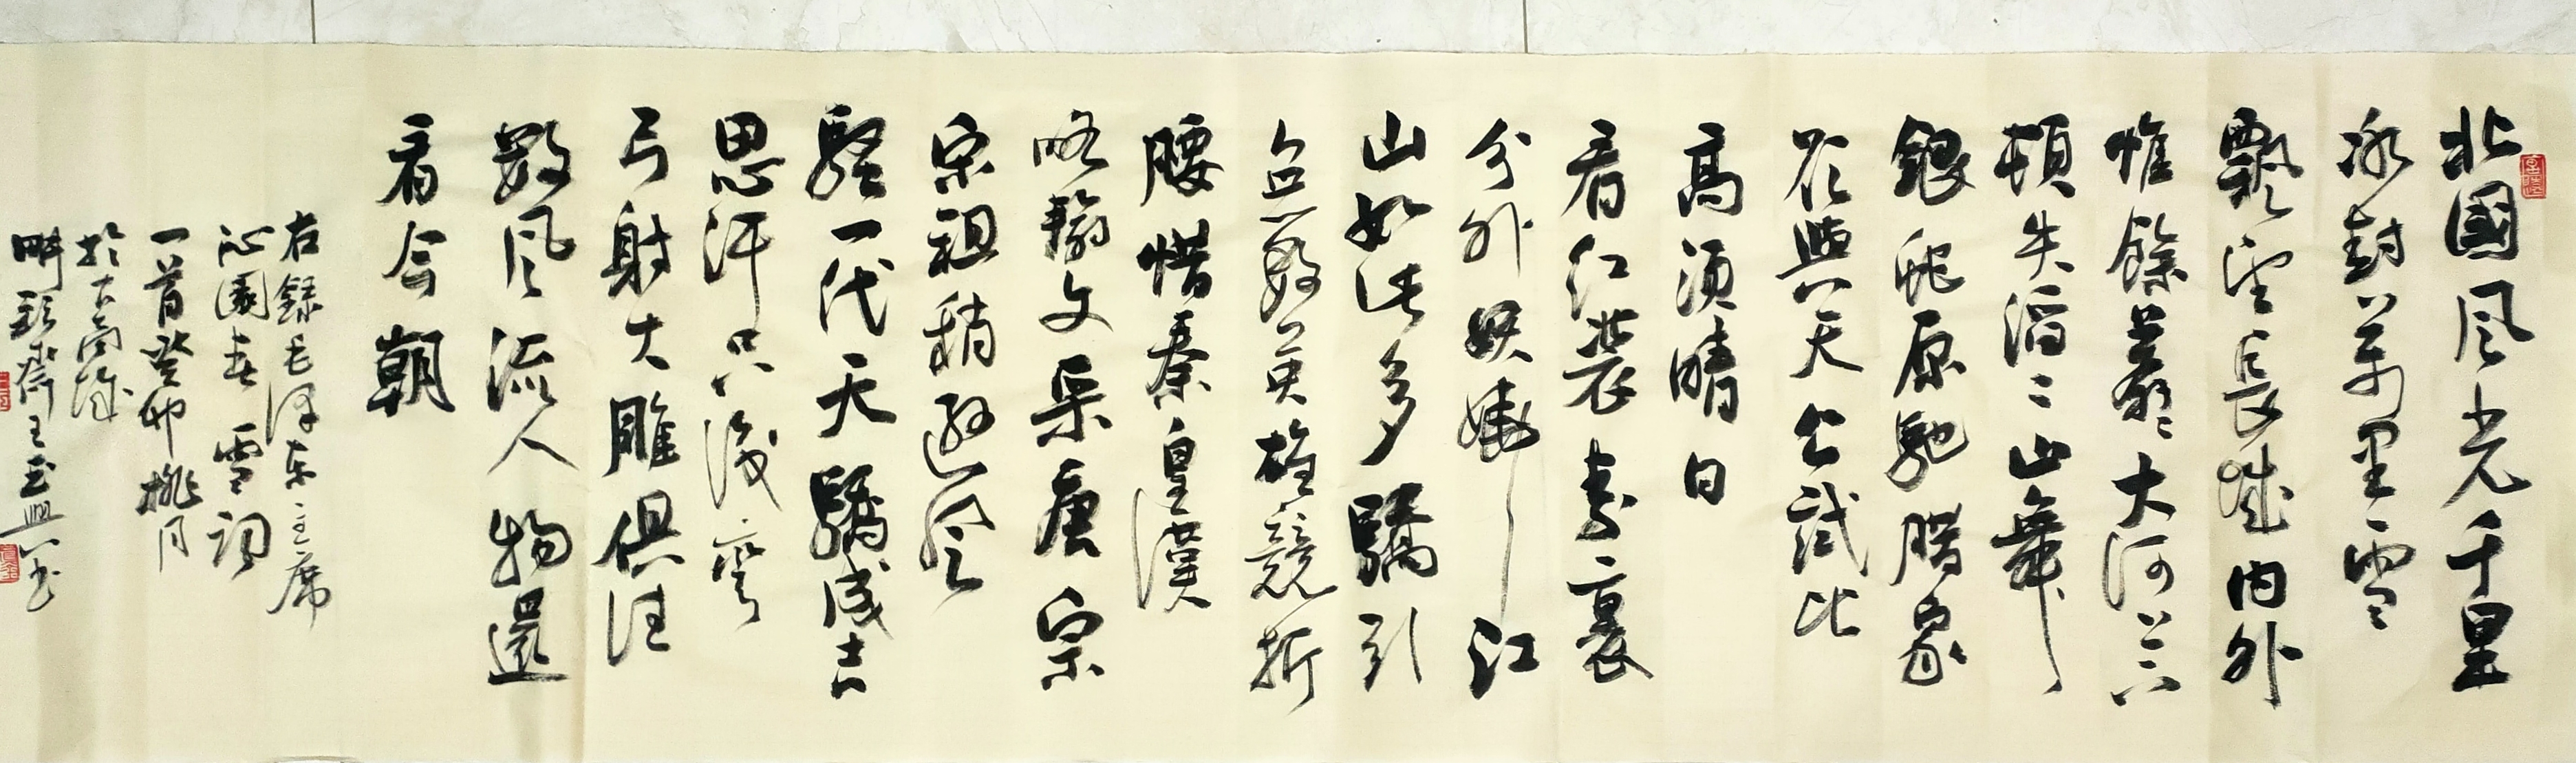 北國風光千里
冰封萬里雪
飄望長城内外
惟餘莽々大河上下
頓失滔々山舞
銀蛇原馳腊象
欲與天公試比
高須晴日
看紅裝素裹
分外妖嬈江
山如此多驕引
無數英雄競折
腰惜秦皇漢
略輸文采唐宗
宋祖稍遜風
騷一代天驕成吉
思汗只識彎
弓射大雕俱往
數風流人物還
看今朝
右録毛澤東主席
沁園春雪詞
一首癸卯桃月
於古商城
齋王玉興書